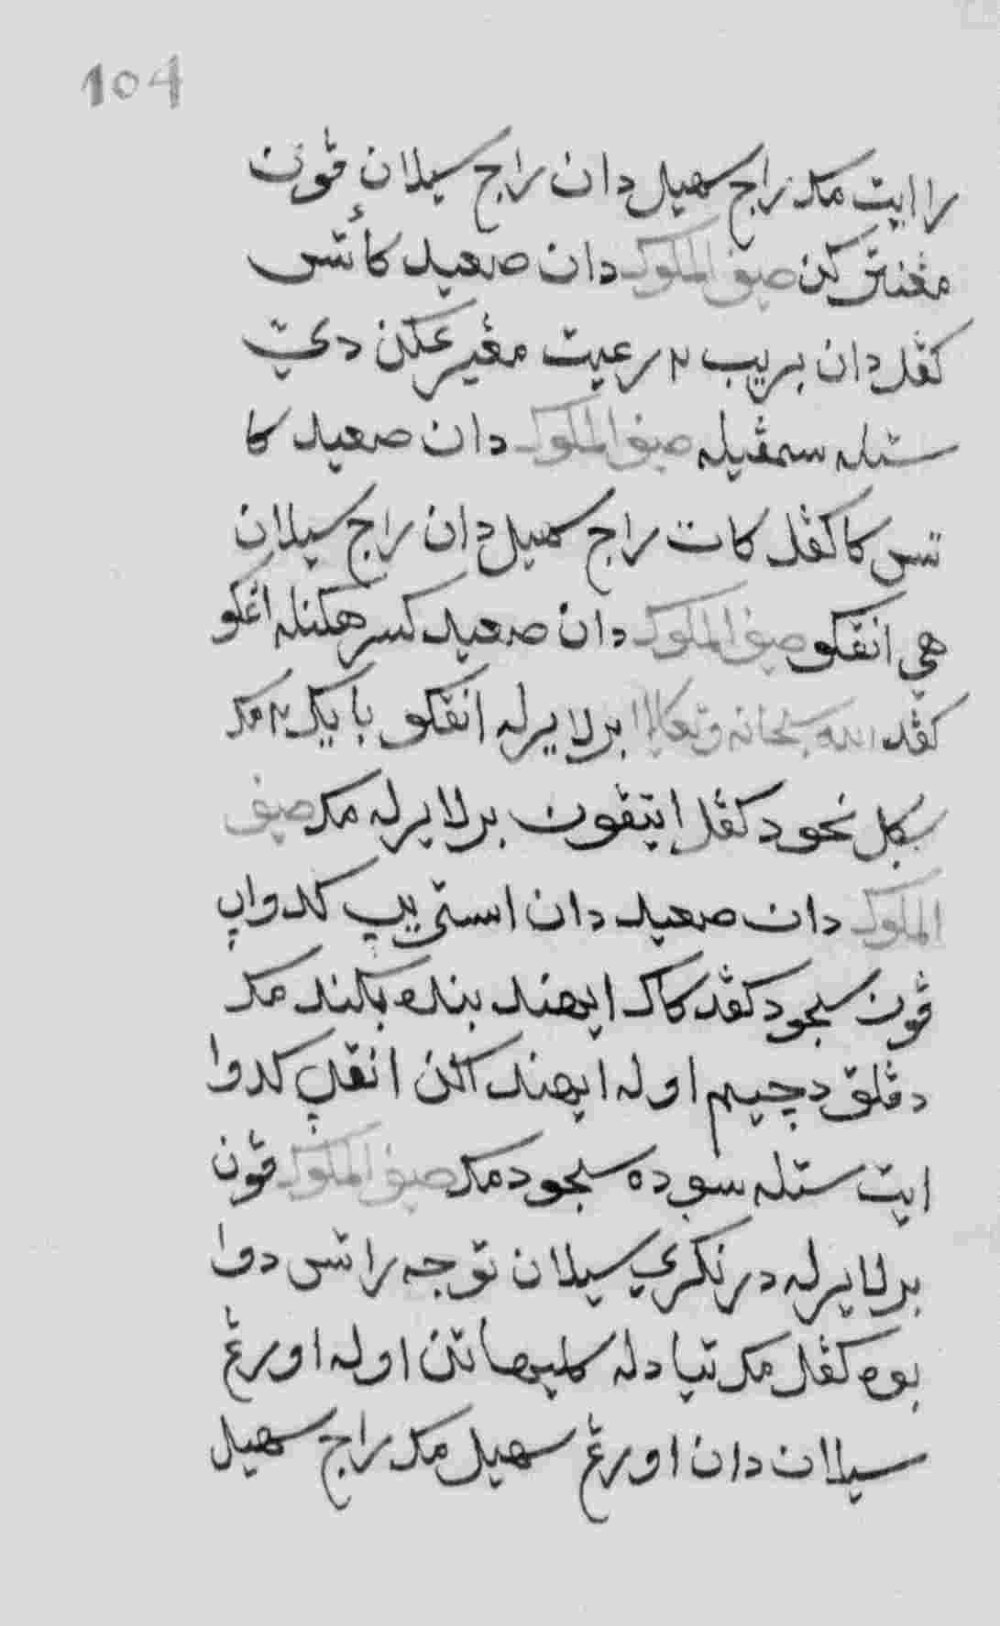 104
را ايت مک راج سهيل دان راج سيلان ڤون
مڠنترکن صيف الملوک دان صعيد کأتس
کڤل دان بريب٢ رعيت مڠيرڠکن دي
ستله سمڤيله صيف الملوک دان صعيد کا
تس کاڤل کات راج سهيل دان راج سيلان
هي انقکو صيف الملوک دان صعيد کسرهکنله اڠکو
کڤد الله سبحانه وتعالى برلايرله انقکو باٴيک٢ مک
سکل نحود کڤل ايتڤون برلايرله مک صيف
الملوک دان صعيد دان استريپ کدواپ
ڤون سجود کڤد کاک ايهند بندهـ بکند مک
دڤلق دچيم اوله ايهند اکن انقپ کدوا
ايت ستله سوده سجود مک صيف الملوک ڤون
برلايرله در نکري سيلان توجه راتس دوا
بوه کڤل مک تياد له کليهاتن اوله اورڠ
سيلان دان اورڠ سهيل مک راج سهيل